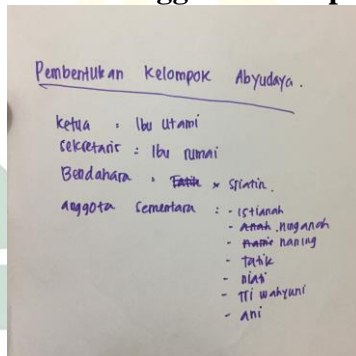 Pembentukan Kelompok Abyudaya.
Ketua : Ibu Utami
Sekretaris : Ibu rumai
Bendahara : Tatik * Sriatin.
anggota Sementara : - istianah
- Anah nunganah
- naning
- Tatik
- Biati
- Tri wahyuni
- ani